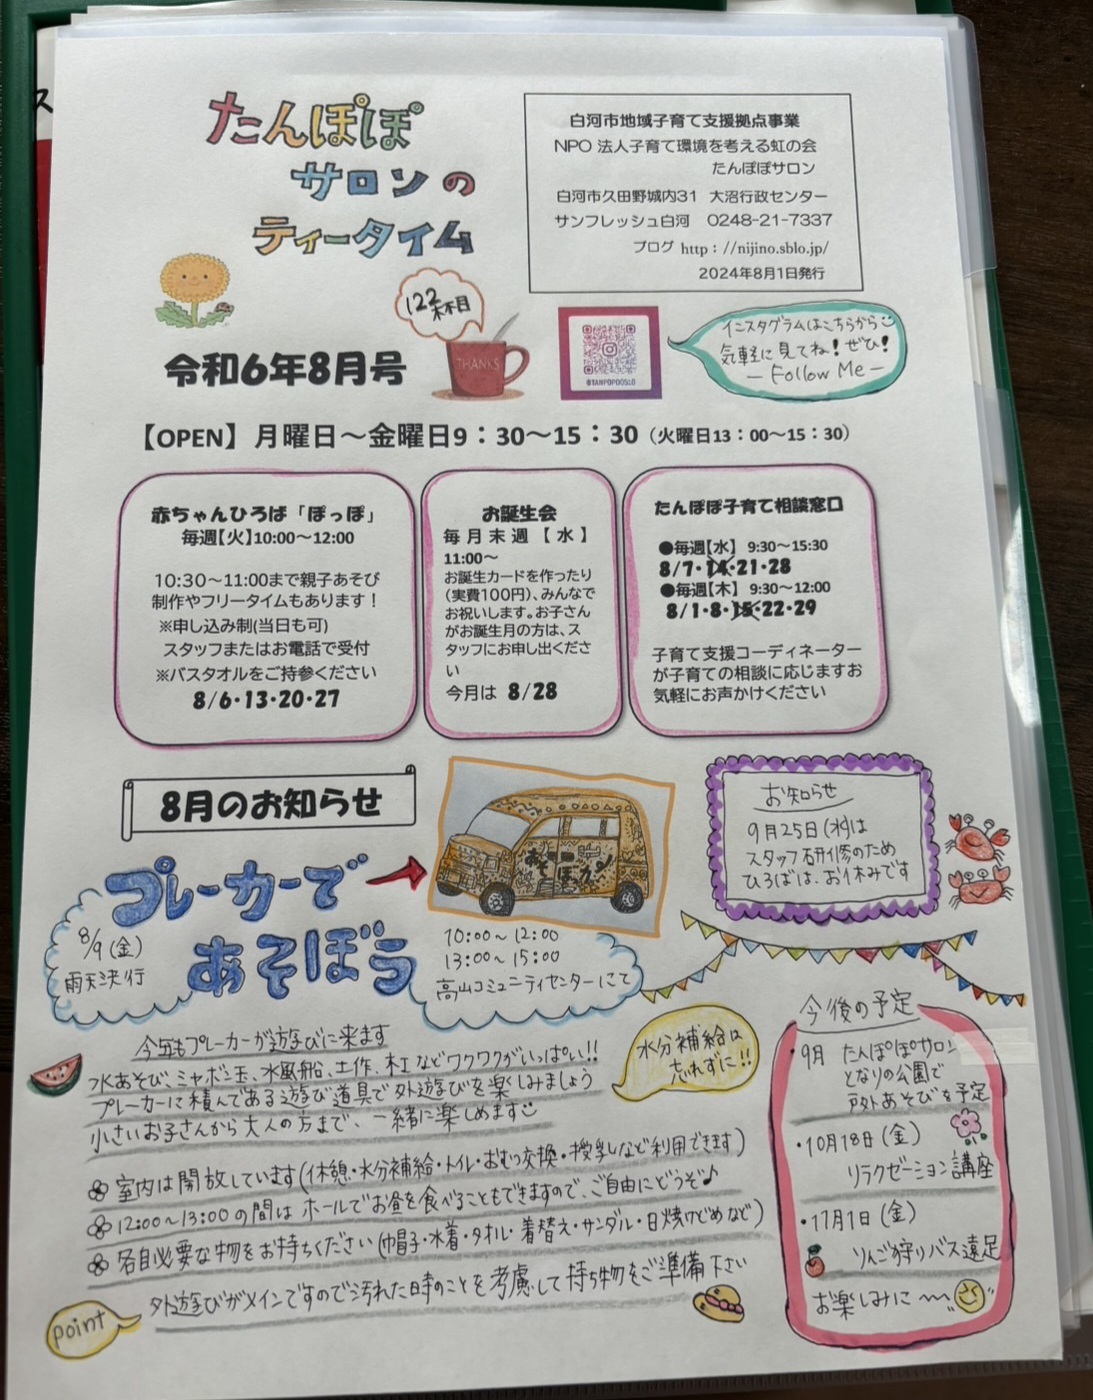 たんぽぽ
サロンの
ティータイム
白河市地域子育て支援拠点事業
NPO 法人子育て環境を考える虹の会
たんぽぽサロン
白河市久田野城内31 大沼行政センター
サンフレッシュ白河 0248-21-7337
ブログ http：//nijino.sblo.jp/
2024年8月1日発行
122杯目
THANKS
令和6年8月号
@TANPOPOOSLO
インスタグラムはこちらから
気軽に見てね！ぜひ！
— Follow Me —
【OPEN】月曜日～金曜日9：30～15：30（火曜日13：00～15：30）
赤ちゃんひろば「ぽっぽ」
毎週【火】10:00～12:00
10:30～11:00まで親子あそび
制作やフリータイムもあります！
※申し込み制(当日も可)
スタッフまたはお電話で受付
※バスタオルをご持参ください
8/6・13・20・27
お誕生会
毎月末週【水】
11:00～
お誕生カードを作ったり
(実費100円)、みんなで
お祝いします。お子さん
がお誕生月の方は、ス
タッフにお申し出くださ
い
今月は 8/28
たんぽぽ子育て相談窓口
●毎週【水】 9:30～15:30
8/7・14・21・28
●毎週【木】 9:30～12:00
8/1・8・15・22・29
子育て支援コーディネーター
が子育ての相談に応じますお
気軽にお声かけください
8月のお知らせ
お知らせ
9月25日(水)は
スタッフ研修のため
ひろばは、お休みです
プレーカーで
あそぼう
8/9(金)
雨天決行
10:00～12:00
13:00～15:00
高山コミュニティセンターにて
今年もプレーカーが遊びに来ます
水あそび、シャボン玉、水風船、土作、木工などワクワクがいっぱい!!
プレーカーに積んである遊び道具で外遊びを楽しみましょう
小さいお子さんから大人の方まで、一緒に楽しめます
水分補給は
忘れずに!!
室内は開放しています(休憩・水分補給・トイレ・おむつ交換・授乳など利用できます)
12:00～13:00の間はホールでお昼を食べることもできますので、ご自由にどうぞ♪
各自必要な物をお持ちください(帽子・水着・タオル・着替え・サンダル・日焼けどめなど)
point
外遊びがメインですので汚れた時のことを考慮して持ち物をご準備下さい
今後の予定
・9月 たんぽぽサロン
となりの公園で
戸外あそびを予定
・10月18日(金)
リラクゼーション講座
・11月1日(金)
りんご狩りバス遠足
お楽しみに～